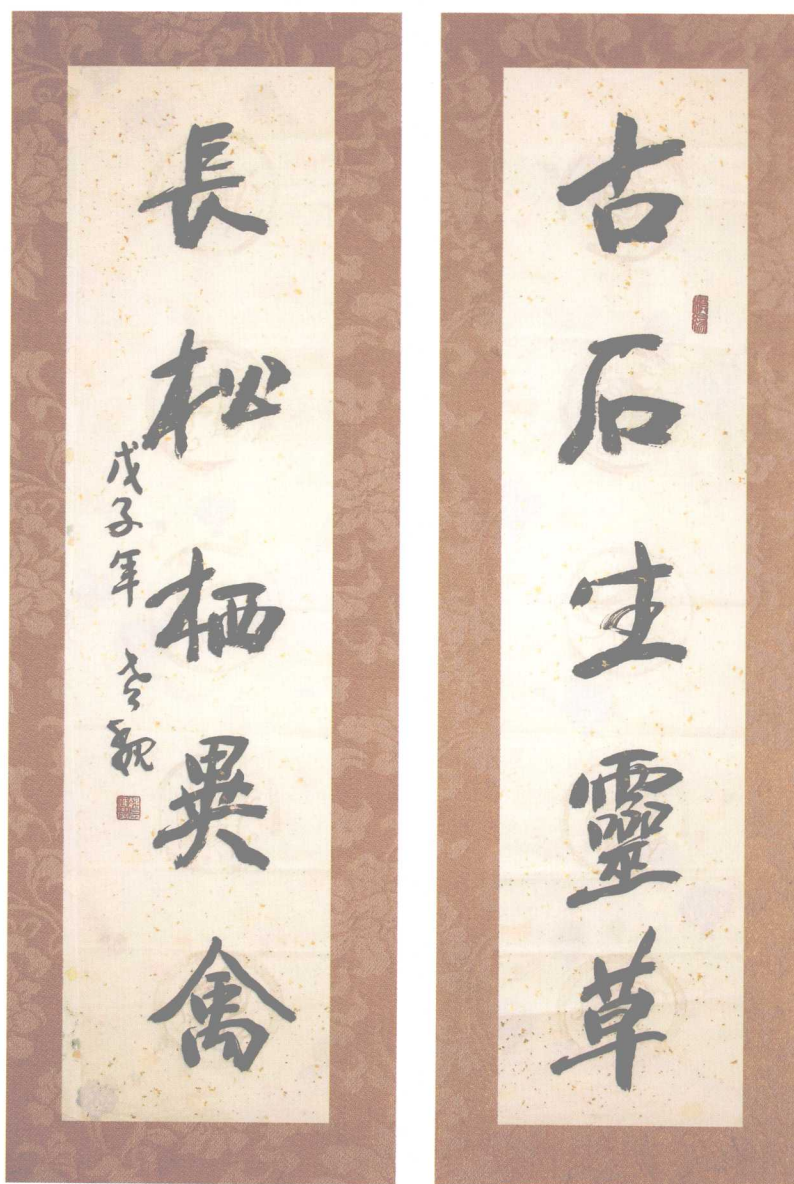 古石生靈草
長松栖異禽
戊子年 老觀